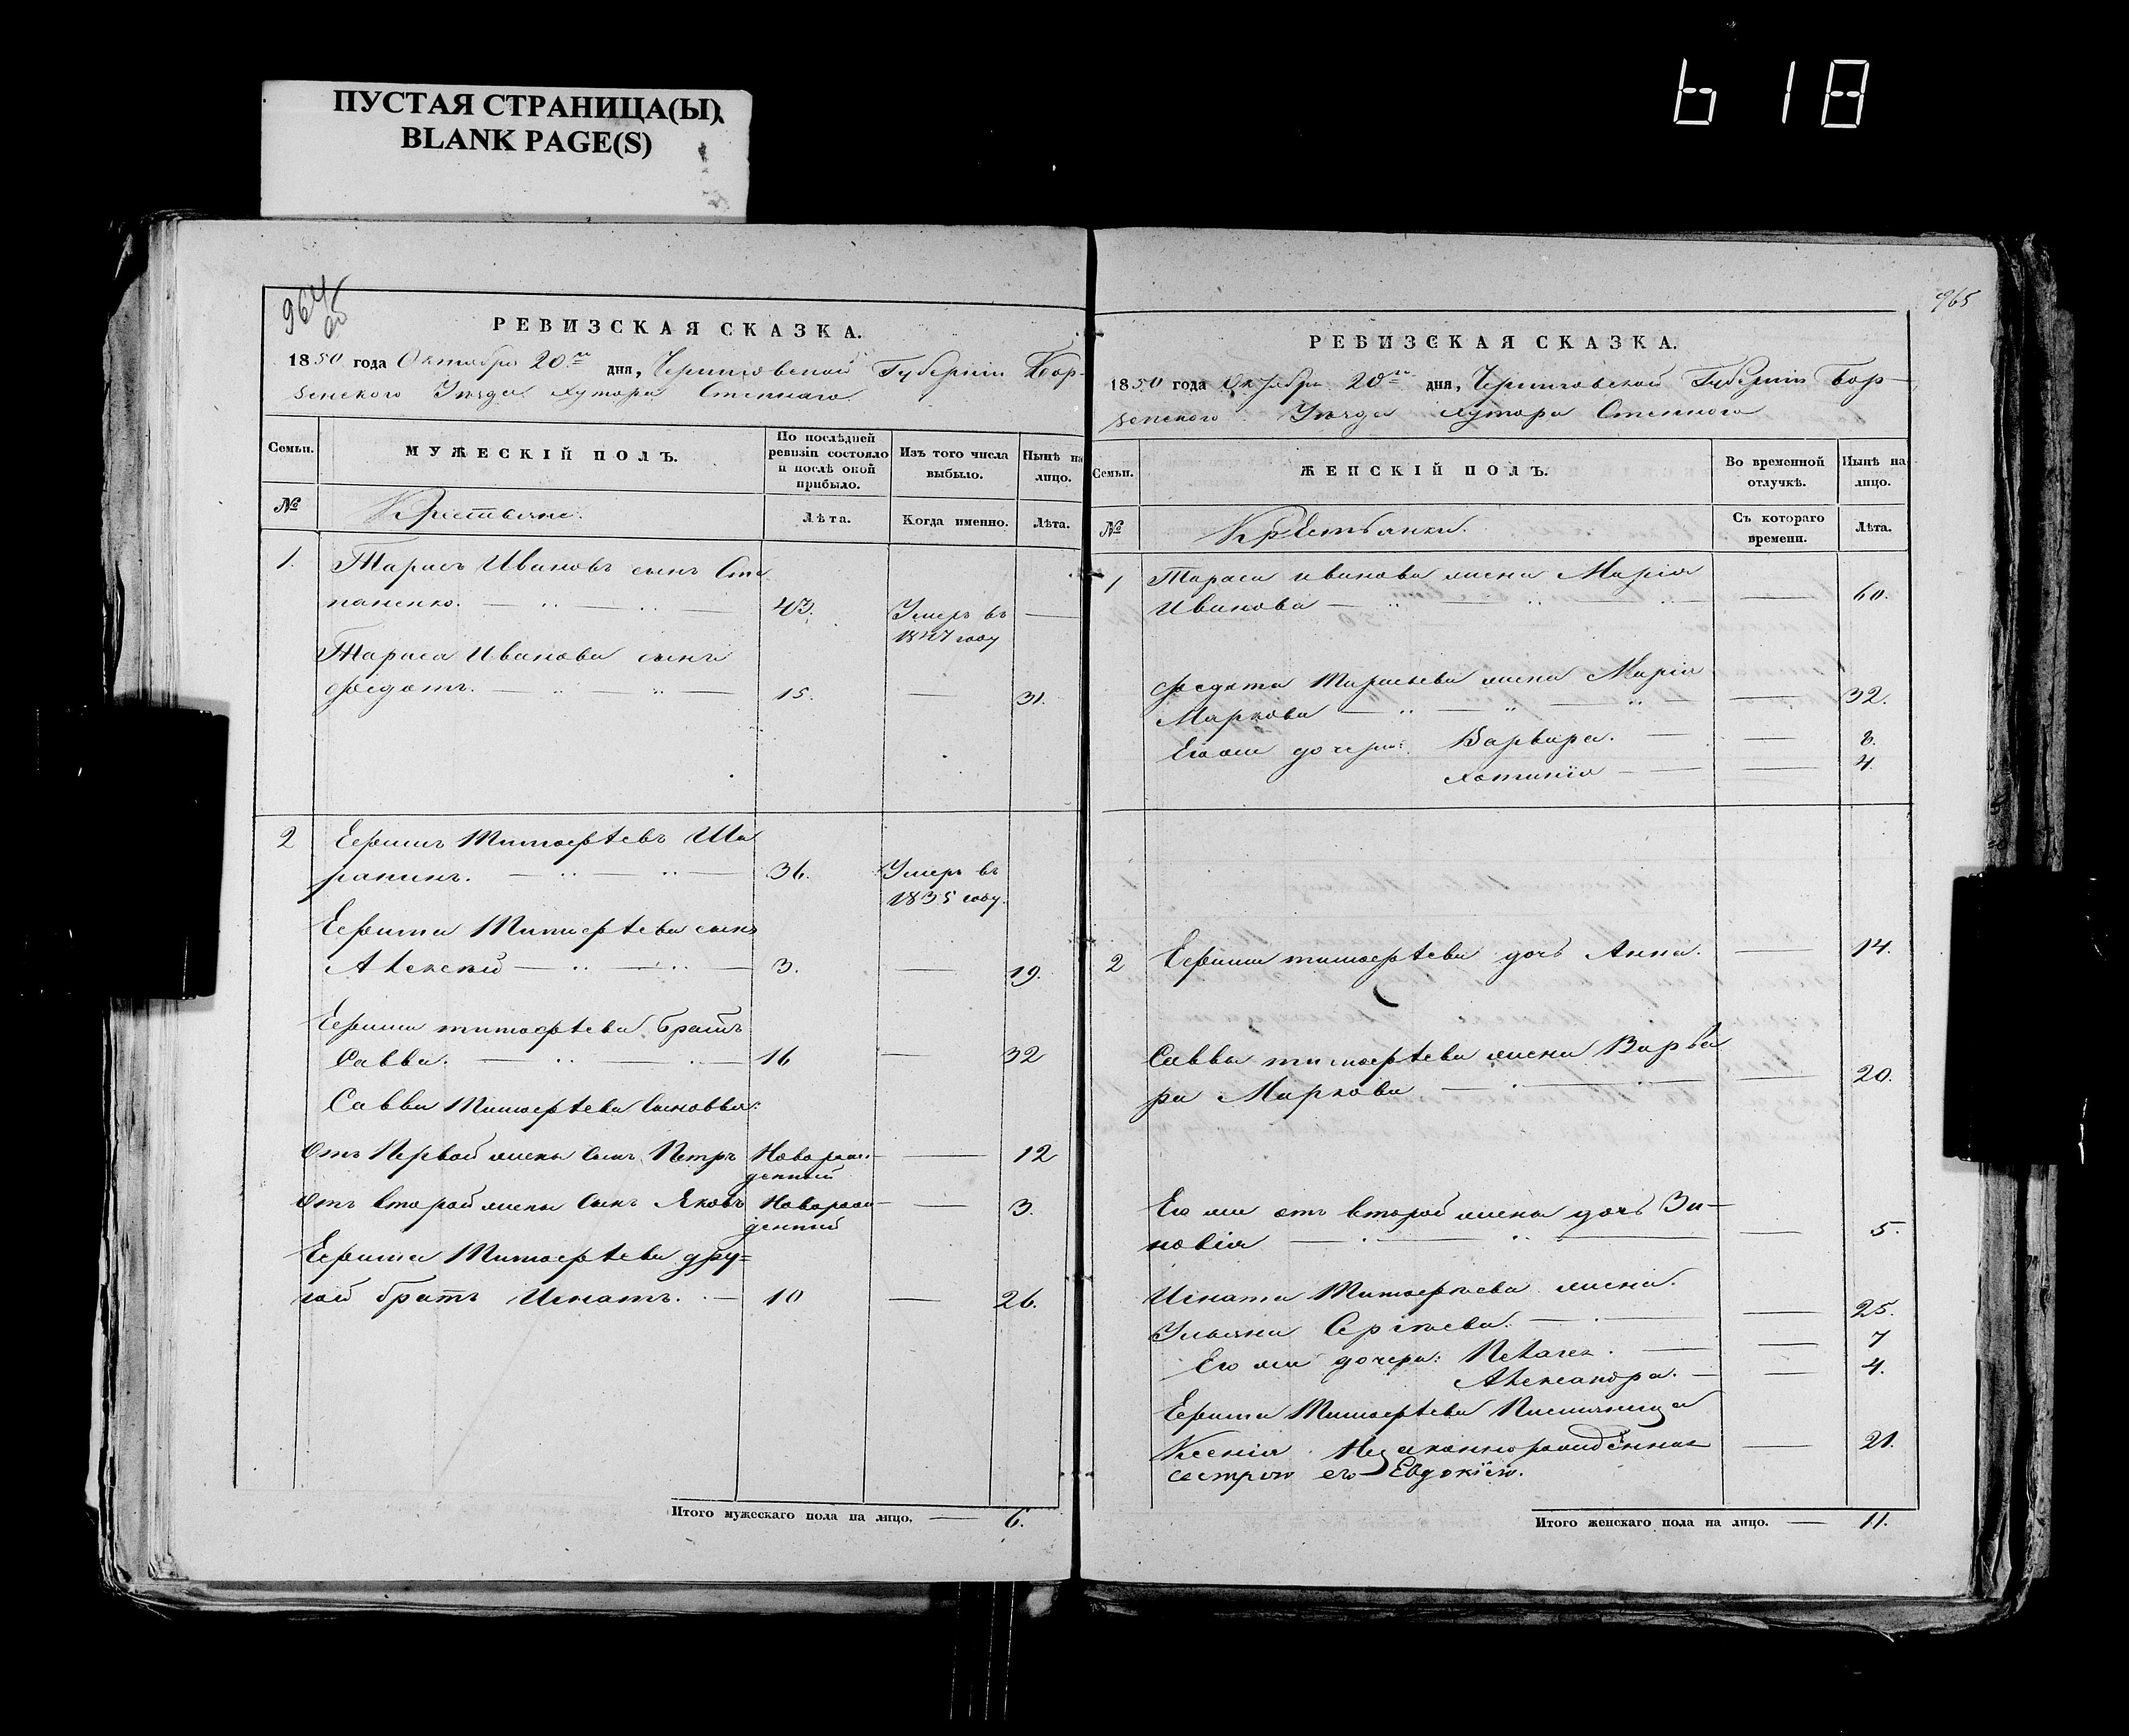 ПУСТАЯ СТРАНИЦА(Ы)
BLANK PAGE(S)
618
964
об
РЕВИЗСКАЯ СКАЗКА.
1850 года Октября 20го дня, Черниговской Губернiи Бор-
зенского Уѣзда хутора Степнаго
Семьи.
МУЖЕСКIЙ ПОЛЪ.
По послѣдней ревизiи состояло и послѣ оной прибыло.
Изъ того числа выбыло.
Нынѣ на лицо.
№
Крестьяне.
Лѣта.
Когда именно.
Лѣта.
1. Тарасъ Ивановъ сынъ Сте
паненко. 43. Умеръ въ
1847 году
Тараса Иванова сынъ
Ѳедотъ. 15. — 31.
2 Ефимъ Тимофѣевъ Ша
рапинъ. 36. Умеръ въ
1835 году.
Ефима Тимофѣева сынъ
Алексѣй 3. — 19.
Ефима тимофѣева братъ
Савва. 16 — 32
Саввы Тимофѣева сыновья:
Отъ Первой жены сынъ Петръ Новорож-
денный — 12
Отъ второй жены сынъ Яковъ Новорож-
денный — 3.
Ефима Тимофѣева дру=
гой братъ Игнатъ. 10 — 26.
Итого мужескаго пола на лицо. — 6.
965
РЕВИЗСКАЯ СКАЗКА.
1850 года Октября 20го дня, Черниговской Губернiи Бор-
зенского Уѣзда хутора Степного
Семьи.
ЖЕНСКIЙ ПОЛЪ.
Во временной отлучкѣ.
Нынѣ на лицо.
№
Крестьянки.
Съ котораго времени.
Лѣта.
1 Тараса иванова жена Марiя
Иванова — 60.
Ѳедота Тарасьева жена Марiя
Маркова — 32.
Его же дочери: Варвара. — 8.
Хотинiя — 4.
2 Ефима тимофѣева дочь Анна. — 14.
Саввы тимофѣева жена Варва
ра Маркова — 20.
Его же отъ второй жены дочь Зи-
новiя — 5.
Игната Тимофѣева жена
Ульяна Сергѣева. — 25.
Его же дочери: Пелагея. — 7
Александра. — 4.
Ефима Тимофѣева Племянница
Ксенiя Незаконнорожденная
сестрою его Евдокiею. — 21.
Итого женскаго пола на лицо. — 11.